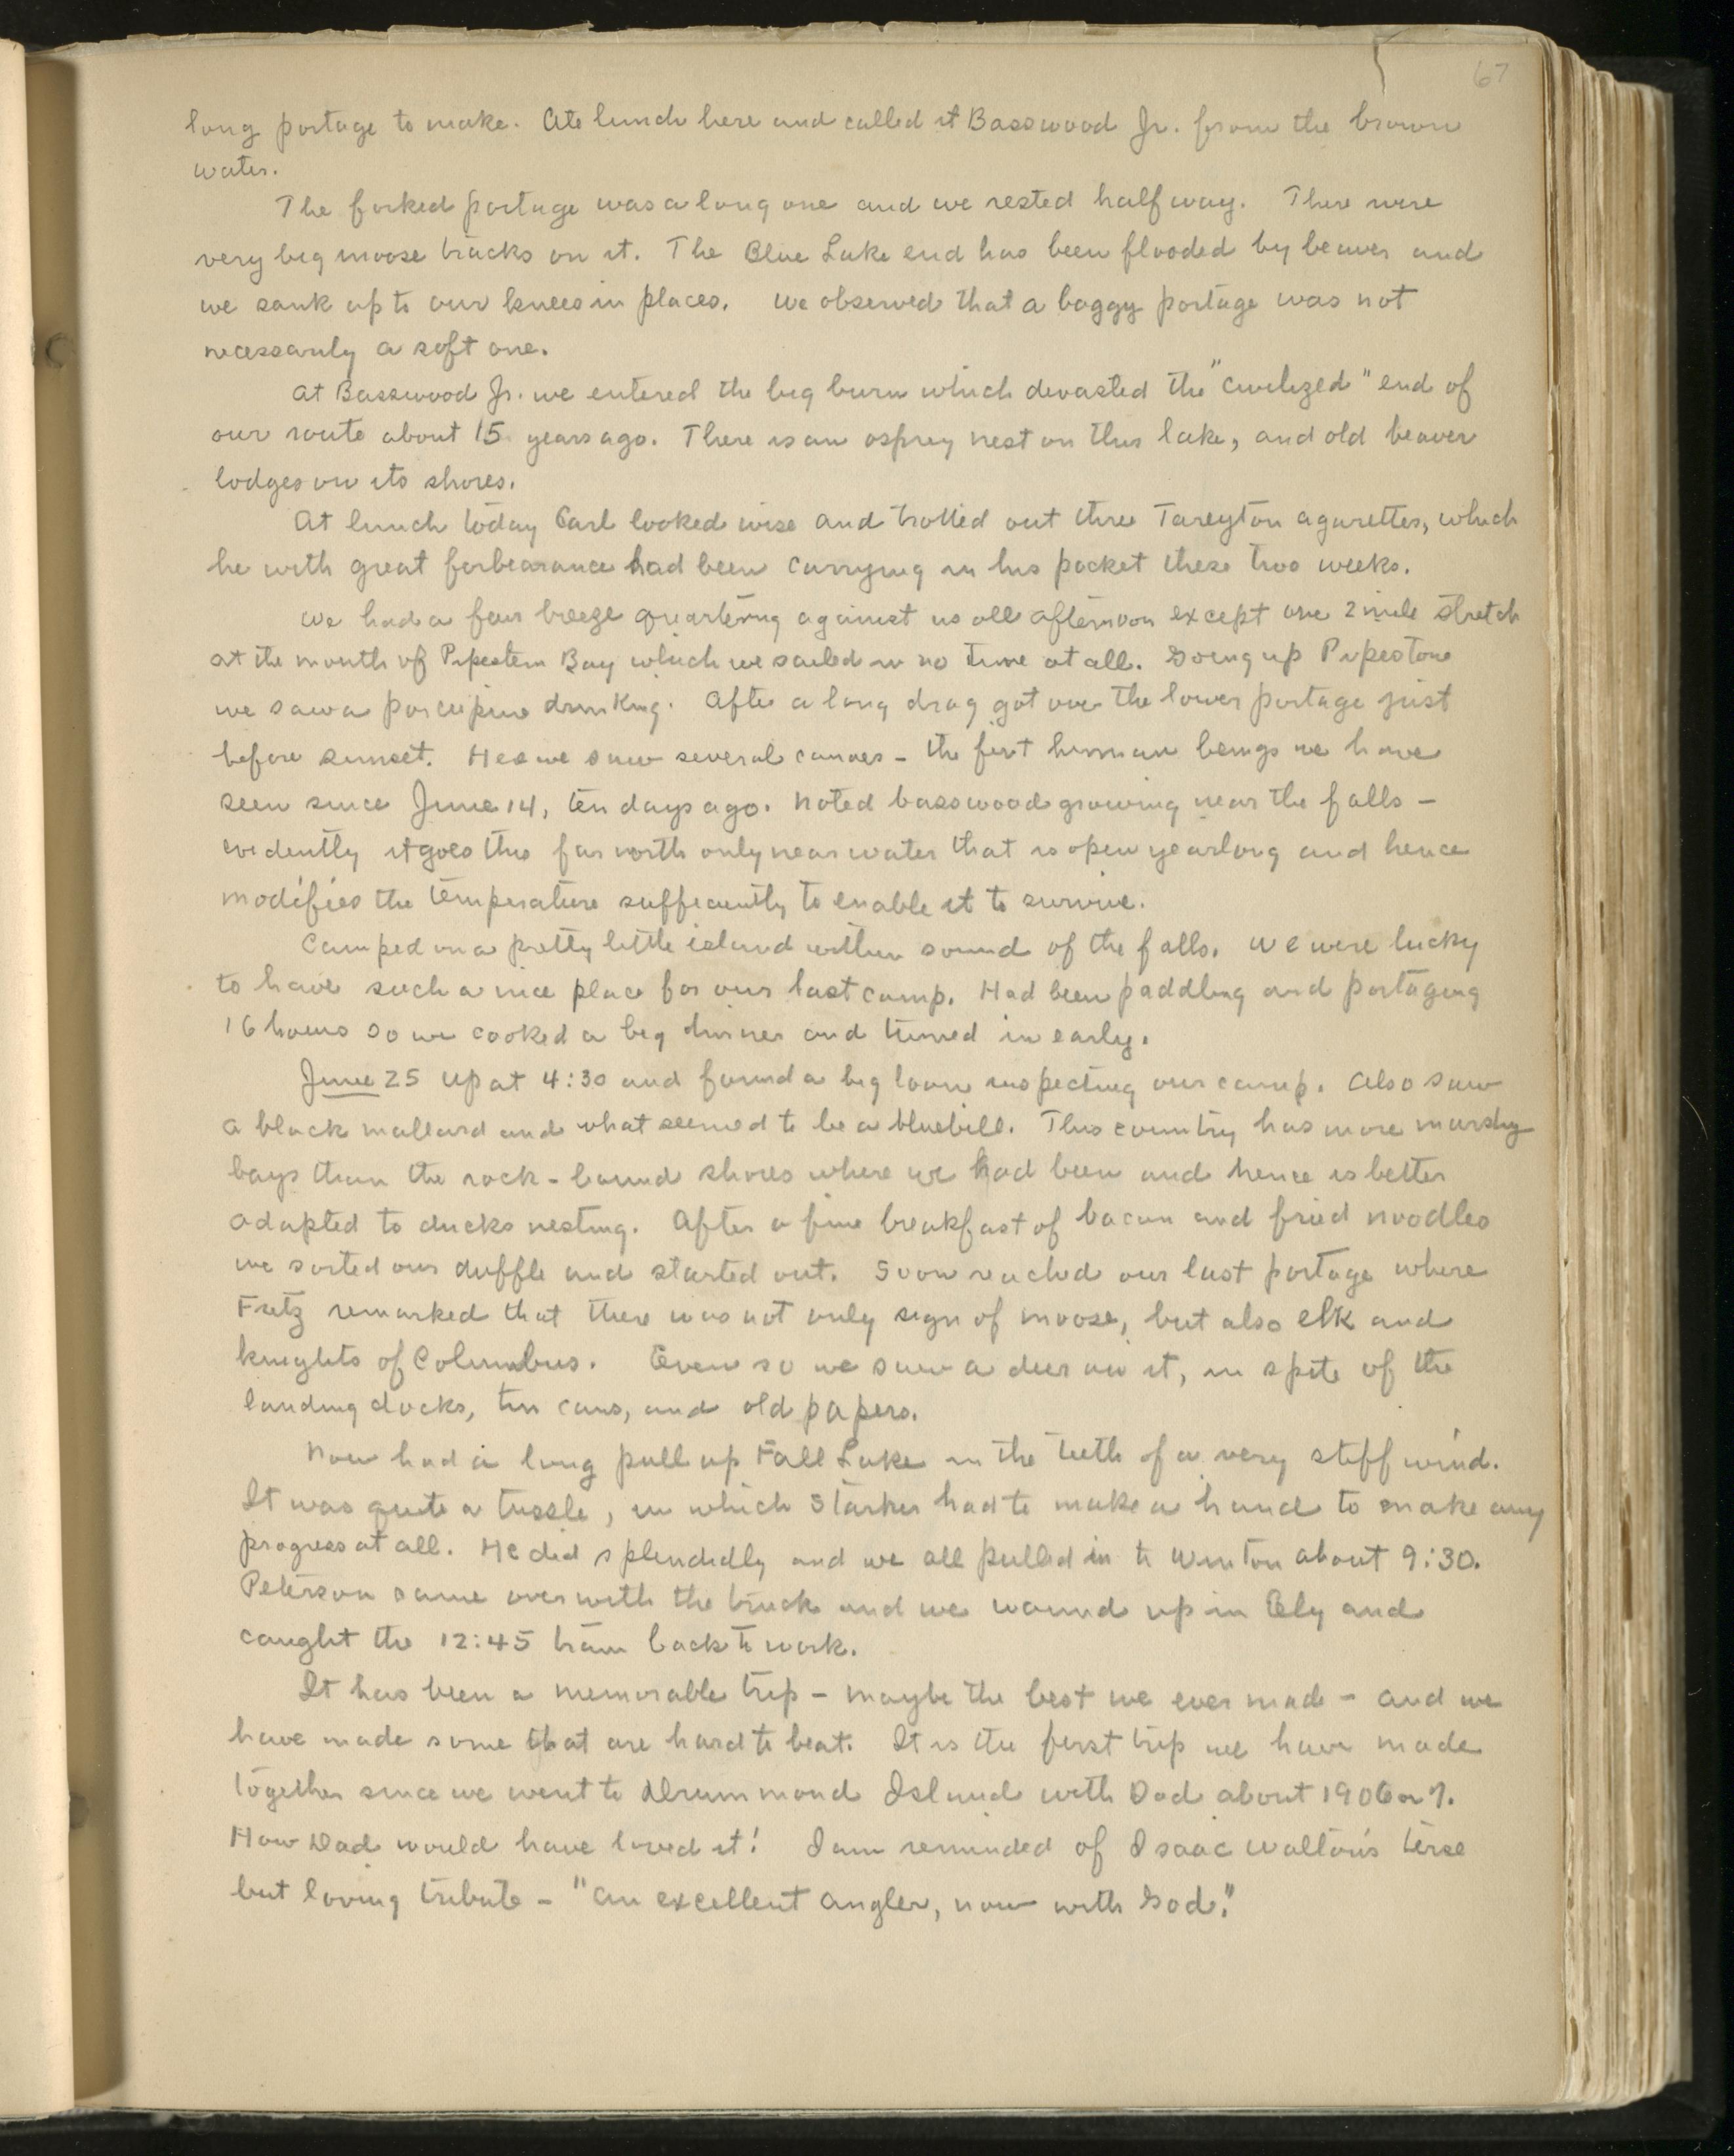 67
long portage to make. Ate lunch here and called it Basswood Jr. from the brown
water.
The forked portage was a long one and we rested half way. There were
very big moose tracks on it. The Blue Lake end has been flooded by beaver and
we sank up to our knees in places. We observed that a boggy portage was not
necessarily a soft one.
At Basswood Jr. we entered the big burn which devasted the "civilized" end of
our route about 15 years ago. There is an osprey nest on this lake, and old beaver
lodges on its shores.
At lunch today Carl looked wise and trotted out three Tareyton cigarettes, which
he with great forbearance had been carrying in his pocket these two weeks.
We had a fair breeze quartering against us all afternoon except one 2 mile stretch
at the mouth of Pipestem Bay which we sailed in no time at all. Going up Pipestone
we saw a porcupine drinking. After a long drag got over the lower portage just
before sunset. Here we saw several canoes - the first human beings we have
seen since June 14, ten days ago. Noted basswood growing near the falls -
evidently it goes this far north only near water that is open yearlong and hence
modifies the temperature sufficiently to enable it to survive.
Camped on a pretty little island within sound of the falls. We were lucky
to have such a nice place for our last camp. Had been paddling and portaging
16 hours so we cooked a big dinner and turned in early.
June 25 Up at 4:30 and found a big loon inspecting our camp. Also saw
a black mallard and what seemed to be a bluebill. This country has more marshy
bays than the rock-bound shores where we had been and hence is better
adapted to ducks nesting. After a fine breakfast of bacon and fried noodles
we sorted our duffle and started out. Soon reached our last portage where
Fritz remarked that there was not only sign of moose, but also elk and
knights of Columbus. Even so we saw a deer on it, in spite of the
landing docks, tin cans, and old papers.
Now had a long pull up Fall Lake in the teeth of a very stiff wind.
It was quite a tussle, in which Starker had to make a hand to make any
progress at all. He did splendidly and we all pulled in to Winton about 9:30.
Peterson came over with the truck and we wound up in Ely and
caught the 12:45 train back to work.
It has been a memorable trip - maybe the best we ever made - and we
have made some that are hard to beat. It is the first trip we have made
together since we went to Drummond Island with Dad about 1906 or 7.
How Dad would have loved it! I am reminded of Isaac Walton's terse
but loving tribute - "An excellent angler, now with God."